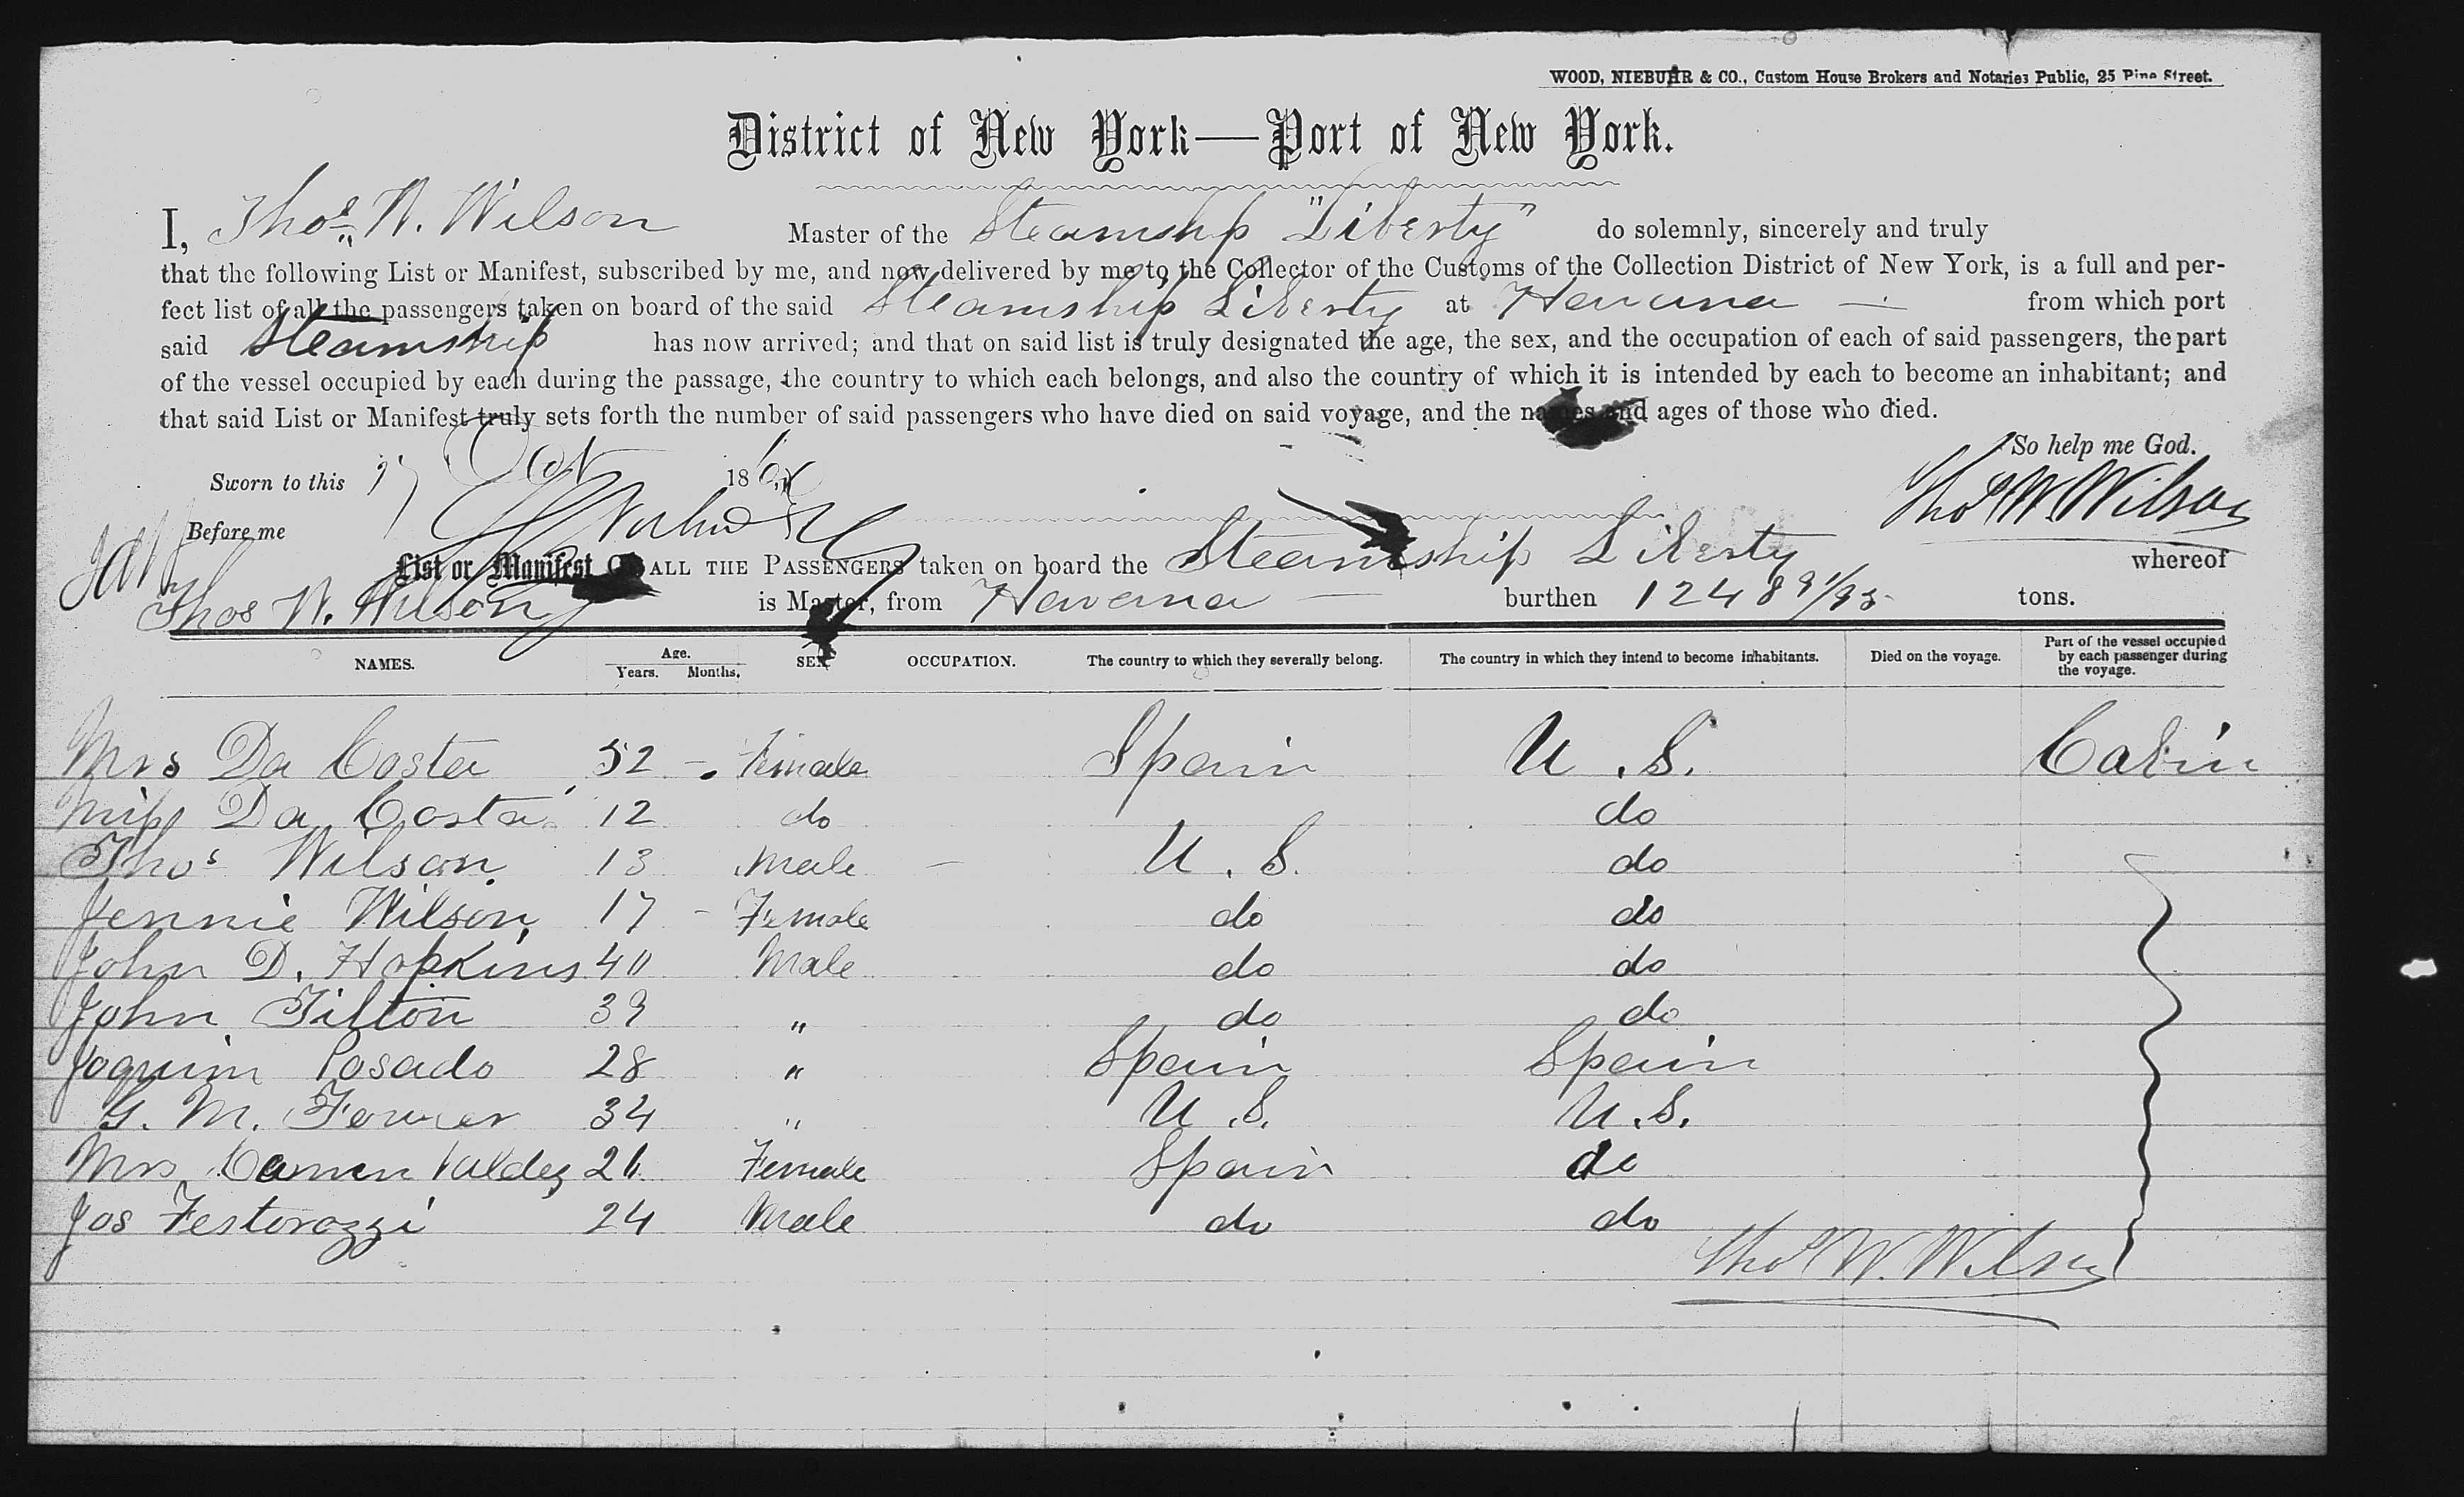 WOOD, NIEBUHR & CO., Custom House Brokers and Notaries Public, 25 Pine Street.
District of New York—Port of New York.
I, Thos. W. Wilson Master of the Steamship "Liberty" do solemnly, sincerely and truly
that the following List or Manifest, subscribed by me, and now delivered by me to the Collector of the Customs of the Collection District of New York, is a full and per-
fect list of all the passengers taken on board of the said Steamship Liberty at Havana — from which port
said Steamship has now arrived; and that on said list is truly designated the age, the sex, and the occupation of each of said passengers, the part
of the vessel occupied by each during the passage, the country to which each belongs, and also the country of which it is intended by each to become an inhabitant; and
that said List or Manifest truly sets forth the number of said passengers who have died on said voyage, and the names and ages of those who died.
So help me God.
Sworn to this 17 Oct 186
Thos W. Wilson
Before me
List or Manifest OF ALL THE PASSENGERS taken on board the Steamship Liberty whereof
Thos W. Wilson is Master, from Havana — burthen 1248 91/95 tons.
NAMES. Age. Years. Months. SEX. OCCUPATION. The country to which they severally belong. The country in which they intend to become inhabitants. Died on the voyage. Part of the vessel occupied by each passenger during the voyage.
Mrs Da Costa 52 - Female Spain U.S. Cabin
Miss Da Costa 12 do do
Thos Wilson 13 Male — U.S. do
Jennie Wilson 17 - Female do do
John D. Hopkins 40 Male do do
John Tilton 39 " do do
Joquim Posado 28 " Spain Spain
G. M. 34 " U.S. U.S.
Mrs Carmen Valdez 26 Female Spain do
Jos Festorazzi 24 Male do do
Thos W. Wilson